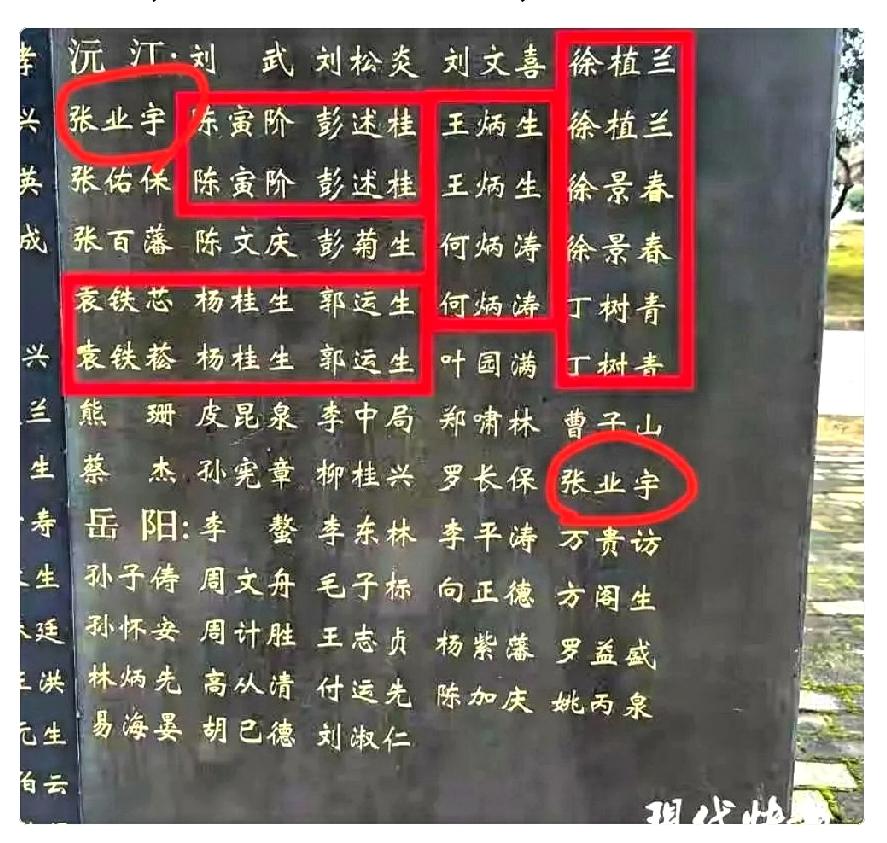 孝 沅 江: 刘 武 刘松炎 刘文喜 徐植兰
兴 张业宇 陈寅阶 彭述桂 王炳生 徐植兰
英 张佑保 陈寅阶 彭述桂 王炳生 徐景春
成 张百藩 陈文庆 彭菊生 何炳涛 徐景春
袁铁芯 杨桂生 郭运生 何炳涛 丁树青
兴 袁铁菘 杨桂生 郭运生 叶园满 丁树青
兰 熊 珊 皮昆泉 李中局 郑啸林 曹子山
生 蔡 杰 孙宪章 柳桂兴 罗长保 张业宇
寿 岳 阳: 李 螯 李东林 李平涛 万贵访
生 孙子俦 周文舟 毛子标 向正德 方阁生
廷 孙怀安 周计胜 王志贞 杨紫藩 罗益盛
洪 林炳先 高从清 付运先 陈加庆 姚丙泉
元生 易海晏 胡已德 刘淑仁
伯云
现代快